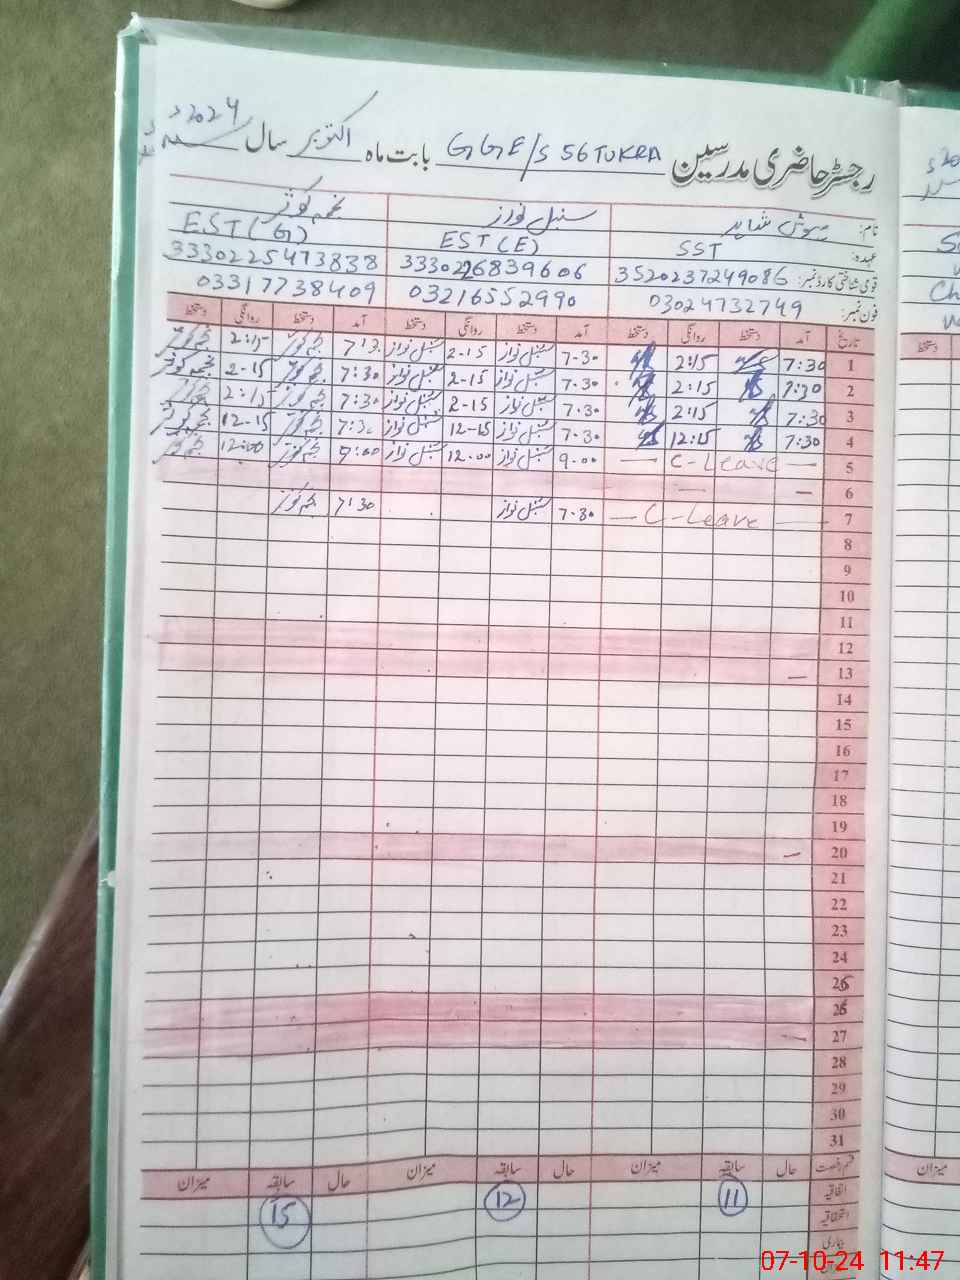 رجسٹر حاضری مدرسین GGE/S 56 TUKRA بابت ماہ اکتوبر سال 2024
نام: سنبل نواز نجمہ کوثر
عہدہ: SST EST (E) EST (G)
قومی شناختی کارڈ نمبر: 3520237249086 3330226839606 3330225473838
فون نمبر: 03024732749 03216552990 03317738409
تاریخ آمد دستخط روانگی دستخط آمد دستخط روانگی دستخط آمد دستخط روانگی دستخط
1 7:30 2:15 7-30 سنبل نواز 2-15 سنبل نواز 2:15
2 7:30 2:15 7-30 سنبل نواز 2-15 سنبل نواز 7:30 2-15
3 7:30 2:15 7-30 سنبل نواز 2-15 سنبل نواز 7:30 2:15
4 7:30 12:15 7-30 سنبل نواز 12-15 سنبل نواز 7:30 12-15
5 — C-Leave — 9-00 سنبل نواز 12-00 سنبل نواز 9:00 12:00
6 — —
7 — C-Leave — 7-30 سنبل نواز 7:30
8
9
10
11
12
13 —
14
15
16
17
18
19
20 —
21
22
23
24
25
26
27 —
28
29
30
31
قسم رخصت حال سابقہ میزان حال سابقہ میزان حال سابقہ میزان
اتفاقیہ 11 12 15
استحقاقیہ
بیماری
دستخط
میزان
07-10-24 11:47